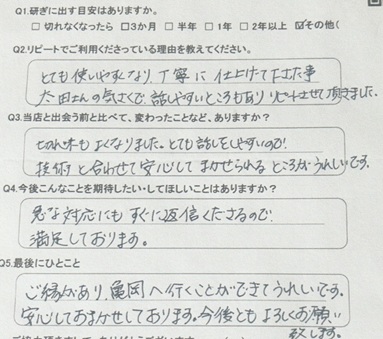 Q1.研ぎに出す目安はありますか。
□ 切れなくなったら □3か月 □ 半年 □ 1年 □ 2年以上 ☑その他(
Q2.リピートでご利用くださっている理由を教えてください。
とても使いやすくなり、丁寧に仕上げて下さた事
太田さんの気さくで話しやすいところもありリピートさせて頂きました。
Q3.当店と出会う前と比べて、変わったことなど、ありますか？
切れ味もよくなりました。とても話をしやすいので
技術と合わせて安心してまかせられるところがうれしいです。
Q4.今後こんなことを期待したい・してほしいことはありますか？
急な対応にもすぐに返信くださるので
満足しております。
Q5.最後にひとこと
ご縁があり、亀岡へ行くことができてうれしいです。
安心しておまかせしております。今後ともよろしくお願い
致します。